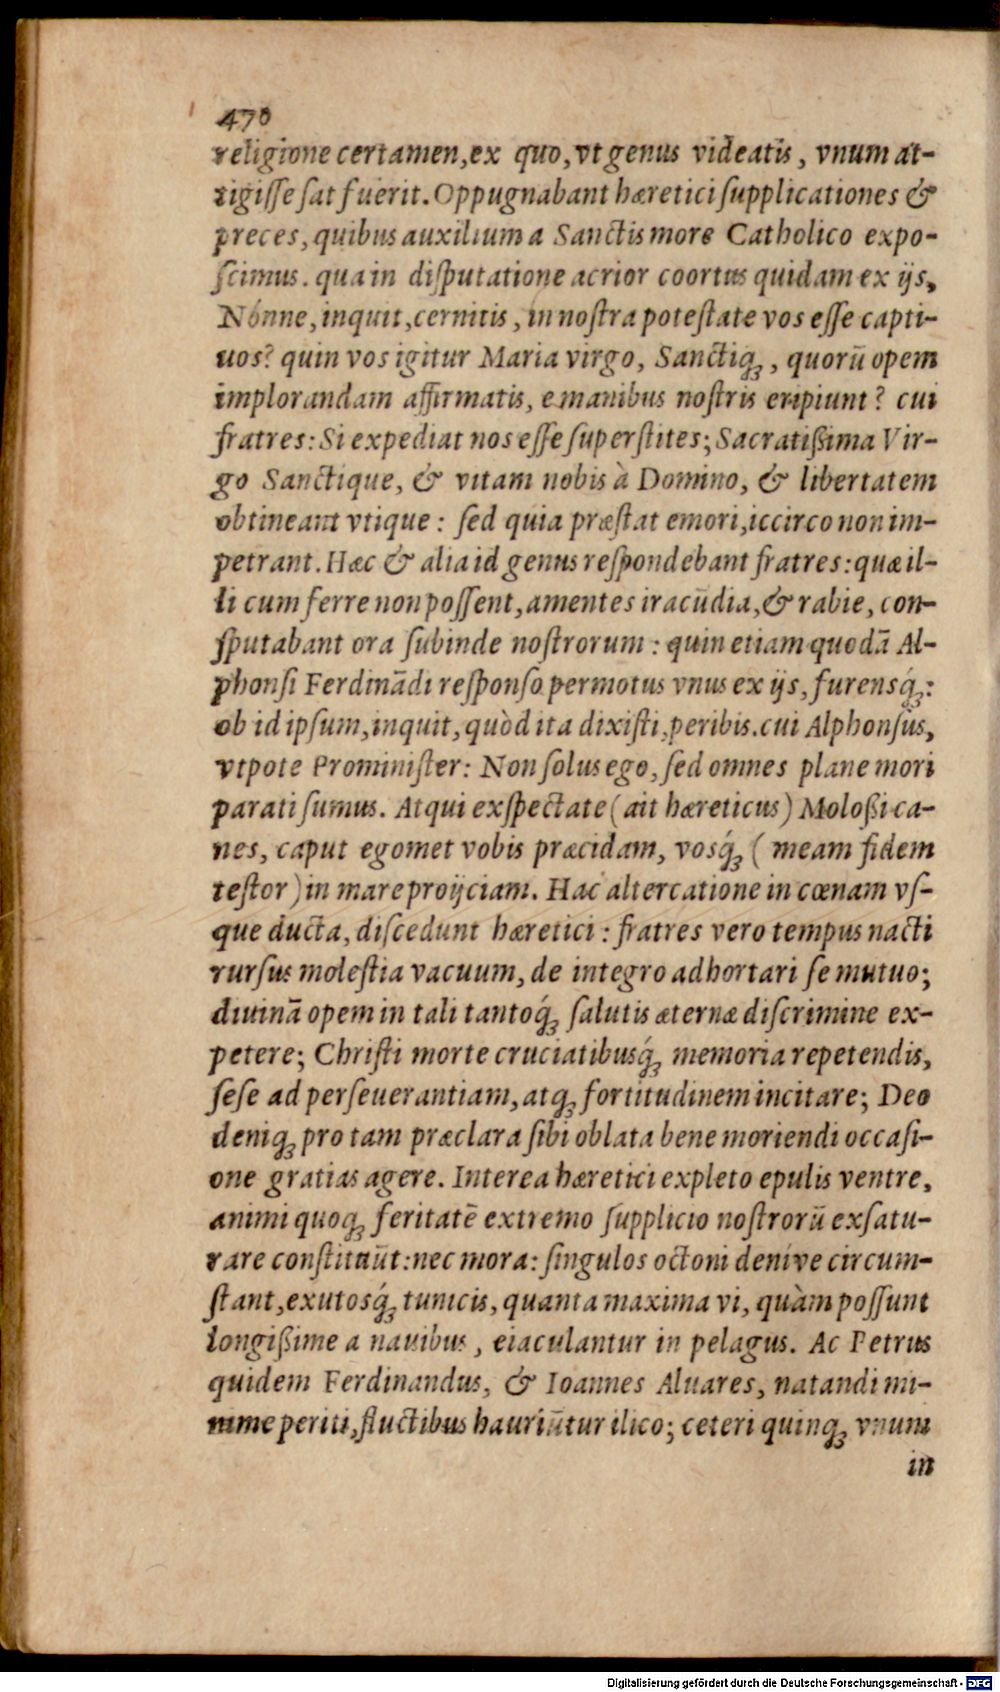 470
religione certamen, ex quo, vt genus videatis, vnum at-
tigisse sat fuerit. Oppugnabant hæretici supplicationes &
preces, quibus auxilium a Sanctis more Catholico expo-
scimus. qua in disputatione acrior coortus quidam ex ijs,
Nónne, inquit, cernitis, in nostra potestate vos esse capti-
uos? quin vos igitur Maria virgo, Sanctiq́ꝫ, quorū opem
implorandam affirmatis, e manibus nostris eripiunt? cui
fratres: Si expediat nos esse superstites; Sacratißima Vir-
go Sanctique, & vitam nobis à Domino, & libertatem
obtineant vtique: sed quia præstat emori, iccirco non im-
petrant. Hæc & alia id genus respondebant fratres: quæ il-
li cum ferre non possent, amentes iracūdia, & rabie, con-
sputabant ora subinde nostrorum: quin etiam quodā Al-
phonsi Ferdinādi responso permotus vnus ex ijs, furensq́ꝫ:
ob id ipsum, inquit, quòd ita dixisti, peribis. cui Alphonsus,
vtpote Prominister: Non solus ego, sed omnes plane mori
parati sumus. Atqui exspectate (ait hæreticus) Moloßi ca-
nes, caput egomet vobis præcidam, vosq́ꝫ (meam fidem
testor) in mare proijciam. Hac altercatione in cœnam vs-
que ducta, discedunt hæretici: fratres vero tempus nacti
rursus molestia vacuum, de integro adhortari se mutuo;
diuinā opem in tali tantoq́ꝫ salutis æternæ discrimine ex-
petere; Christi morte cruciatibusq́ꝫ memoria repetendis,
sese ad perseuerantiam, atqꝫ fortitudinem incitare; Deo
deniqꝫ pro tam præclara sibi oblata bene moriendi occasi-
one gratias agere. Interea hæretici expleto epulis ventre,
animi quoqꝫ feritatē extremo supplicio nostrorū exsatu-
rare constituūt: nec mora: singulos octoni denive circum-
stant, exutosq́ꝫ tunicis, quanta maxima vi, quàm possunt
longißime a nauibus, eiaculantur in pelagus. Ac Petrus
quidem Ferdinandus, & Ioannes Aluares, natandi mi-
nime periti, fluctibus hauriūtur ilico; ceteri quinqꝫ vnum
in
Digitalisierung gefördert durch die Deutsche Forschungsgemeinschaft - DFG